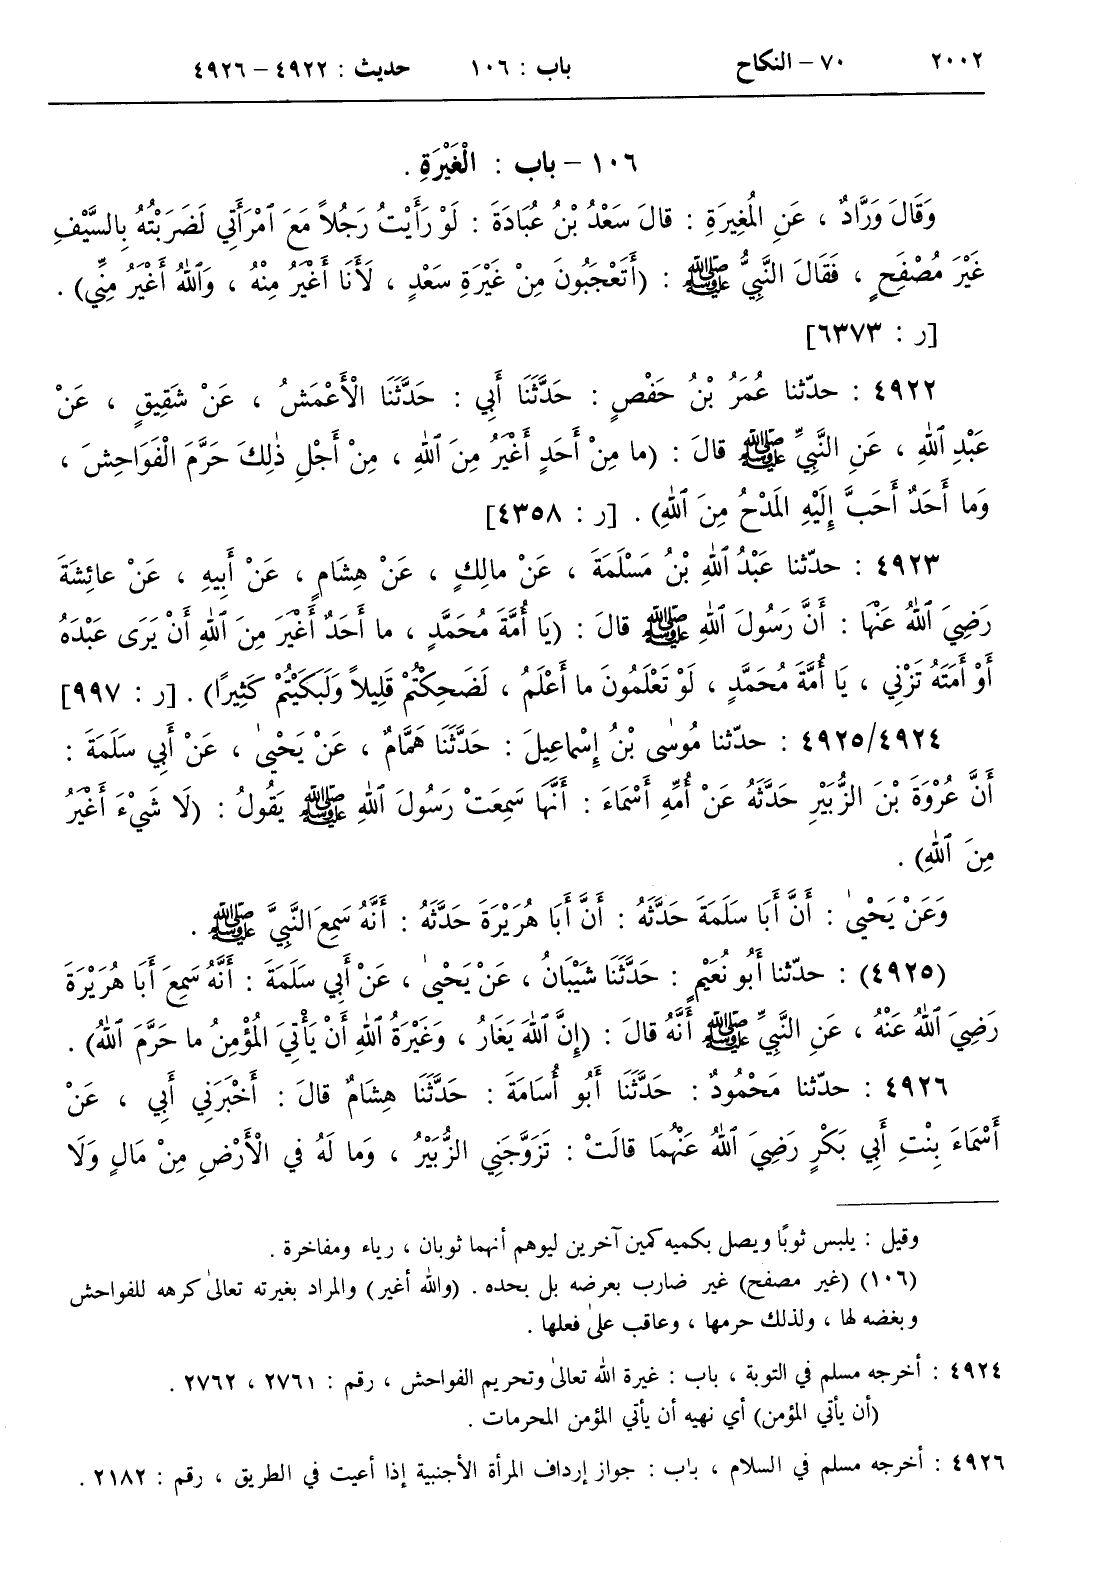 ٢٠٠٢ ٧٠ – النكاح باب : ١٠٦ حديث : ٤٩٢٢ – ٤٩٢٦
١٠٦ – باب : الْغَيْرَةِ .
وَقَالَ وَرَّادٌ ، عَنِ المُغِيرَةِ : قالَ سَعْدُ بْنُ عُبَادَةَ : لَوْ رَأَيْتُ رَجُلاً مَعَ ٱمْرَأَتِي لَضَرَبْتُهُ بِالسَّيْفِ
غَيْرَ مُصْفَحٍ ، فَقَالَ النَّبِيُّ ﷺ : (أَتَعْجَبُونَ مِنْ غَيْرَةِ سَعْدٍ ، لَأَنَا أَغْيَرُ مِنْهُ ، وَٱللهُ أَغْيَرُ مِنِّي) .
[ر : ٦٣٧٣]
٤٩٢٢ : حدّثنا عُمَرُ بْنُ حَفْصٍ : حَدَّثَنَا أَبِي : حَدَّثَنَا الْأَعْمَشُ ، عَنْ شَقِيقٍ ، عَنْ
عَبْدِ ٱللهِ ، عَنِ النَّبِيِّ ﷺ قالَ : (ما مِنْ أَحَدٍ أَغْيَرُ مِنَ ٱللهِ ، مِنْ أَجْلِ ذٰلِكَ حَرَّمَ الْفَوَاحِشَ ،
وَما أَحَدٌ أَحَبَّ إِلَيْهِ المَدْحُ مِنَ ٱللهِ) . [ر : ٤٣٥٨]
٤٩٢٣ : حدّثنا عَبْدُ ٱللهِ بْنُ مَسْلَمَةَ ، عَنْ مالِكٍ ، عَنْ هِشَامٍ ، عَنْ أَبِيهِ ، عَنْ عائِشَةَ
رَضِيَ ٱللهُ عَنْهَا : أَنَّ رَسُولَ ٱللهِ ﷺ قالَ : (يَا أُمَّةَ مُحَمَّدٍ ، ما أَحَدٌ أَغْيَرَ مِنَ ٱللهِ أَنْ يَرَى عَبْدَهُ
أَوْ أَمَتَهُ تَزْنِي ، يَا أُمَّةَ مُحَمَّدٍ ، لَوْ تَعْلَمُونَ ما أَعْلَمُ ، لَضَحِكْتُمْ قَلِيلاً وَلَبَكَيْتُمْ كَثِيرًا) . [ر : ٩٩٧]
٤٩٢٥/٤٩٢٤ : حدّثنا مُوسٰى بْنُ إِسْماعِيلَ : حَدَّثَنَا هَمَّامٌ ، عَنْ يَحْيىٰ ، عَنْ أَبِي سَلَمَةَ :
أَنَّ عُرْوَةَ بْنَ الزُّبَيْرِ حَدَّثَهُ عَنْ أُمِّهِ أَسْماءَ : أَنَّهَا سَمِعَتْ رَسُولَ ٱللهِ ﷺ يَقُولُ : (لَا شَيْءَ أَغْيَرُ
مِنَ ٱللهِ) .
وَعَنْ يَحْيىٰ : أَنَّ أَبَا سَلَمَةَ حَدَّثَهُ : أَنَّ أَبَا هُرَيْرَةَ حَدَّثَهُ : أَنَّهُ سَمِعَ النَّبِيَّ ﷺ .
(٤٩٢٥) : حدّثنا أَبُو نُعَيْمٍ : حَدَّثَنَا شَيْبَانُ ، عَنْ يَحْيىٰ ، عَنْ أَبِي سَلَمَةَ : أَنَّهُ سَمِعَ أَبَا هُرَيْرَةَ
رَضِيَ ٱللهُ عَنْهُ ، عَنِ النَّبِيِّ ﷺ أَنَّهُ قالَ : (إِنَّ ٱللهَ يَغَارُ ، وَغَيْرَةُ ٱللهِ أَنْ يَأْتِيَ المُؤْمِنُ ما حَرَّمَ ٱللهُ) .
٤٩٢٦ : حدّثنا مَحْمُودٌ : حَدَّثَنَا أَبُو أُسَامَةَ : حَدَّثَنَا هِشَامٌ قالَ : أَخْبَرَنِي أَبِي ، عَنْ
أَسْمَاءَ بِنْتِ أَبِي بَكْرٍ رَضِيَ ٱللهُ عَنْهُمَا قالَتْ : تَزَوَّجَنِي الزُّبَيْرُ ، وَما لَهُ فِي الْأَرْضِ مِنْ مَالٍ وَلَا
وقيل : يلبس ثوبًا ويصل بكميه كمين آخرين ليوهم أنهما ثوبان ، رياء ومفاخرة .
(١٠٦) (غير مصفح) غير ضارب بعرضه بل بحده . (والله أغير) والمراد بغيرته تعالىٰ كرهه للفواحش
وبغضه لها ، ولذلك حرمها ، وعاقب علىٰ فعلها .
٤٩٢٤ : أخرجه مسلم في التوبة ، باب : غيرة الله تعالىٰ وتحريم الفواحش ، رقم : ٢٧٦١ ، ٢٧٦٢ .
(أن يأتي المؤمن) أي نهيه أن يأتي المؤمن المحرمات .
٤٩٢٦ : أخرجه مسلم في السلام ، باب : جواز إرداف المرأة الأجنبية إذا أعيت في الطريق ، رقم : ٢١٨٢ .